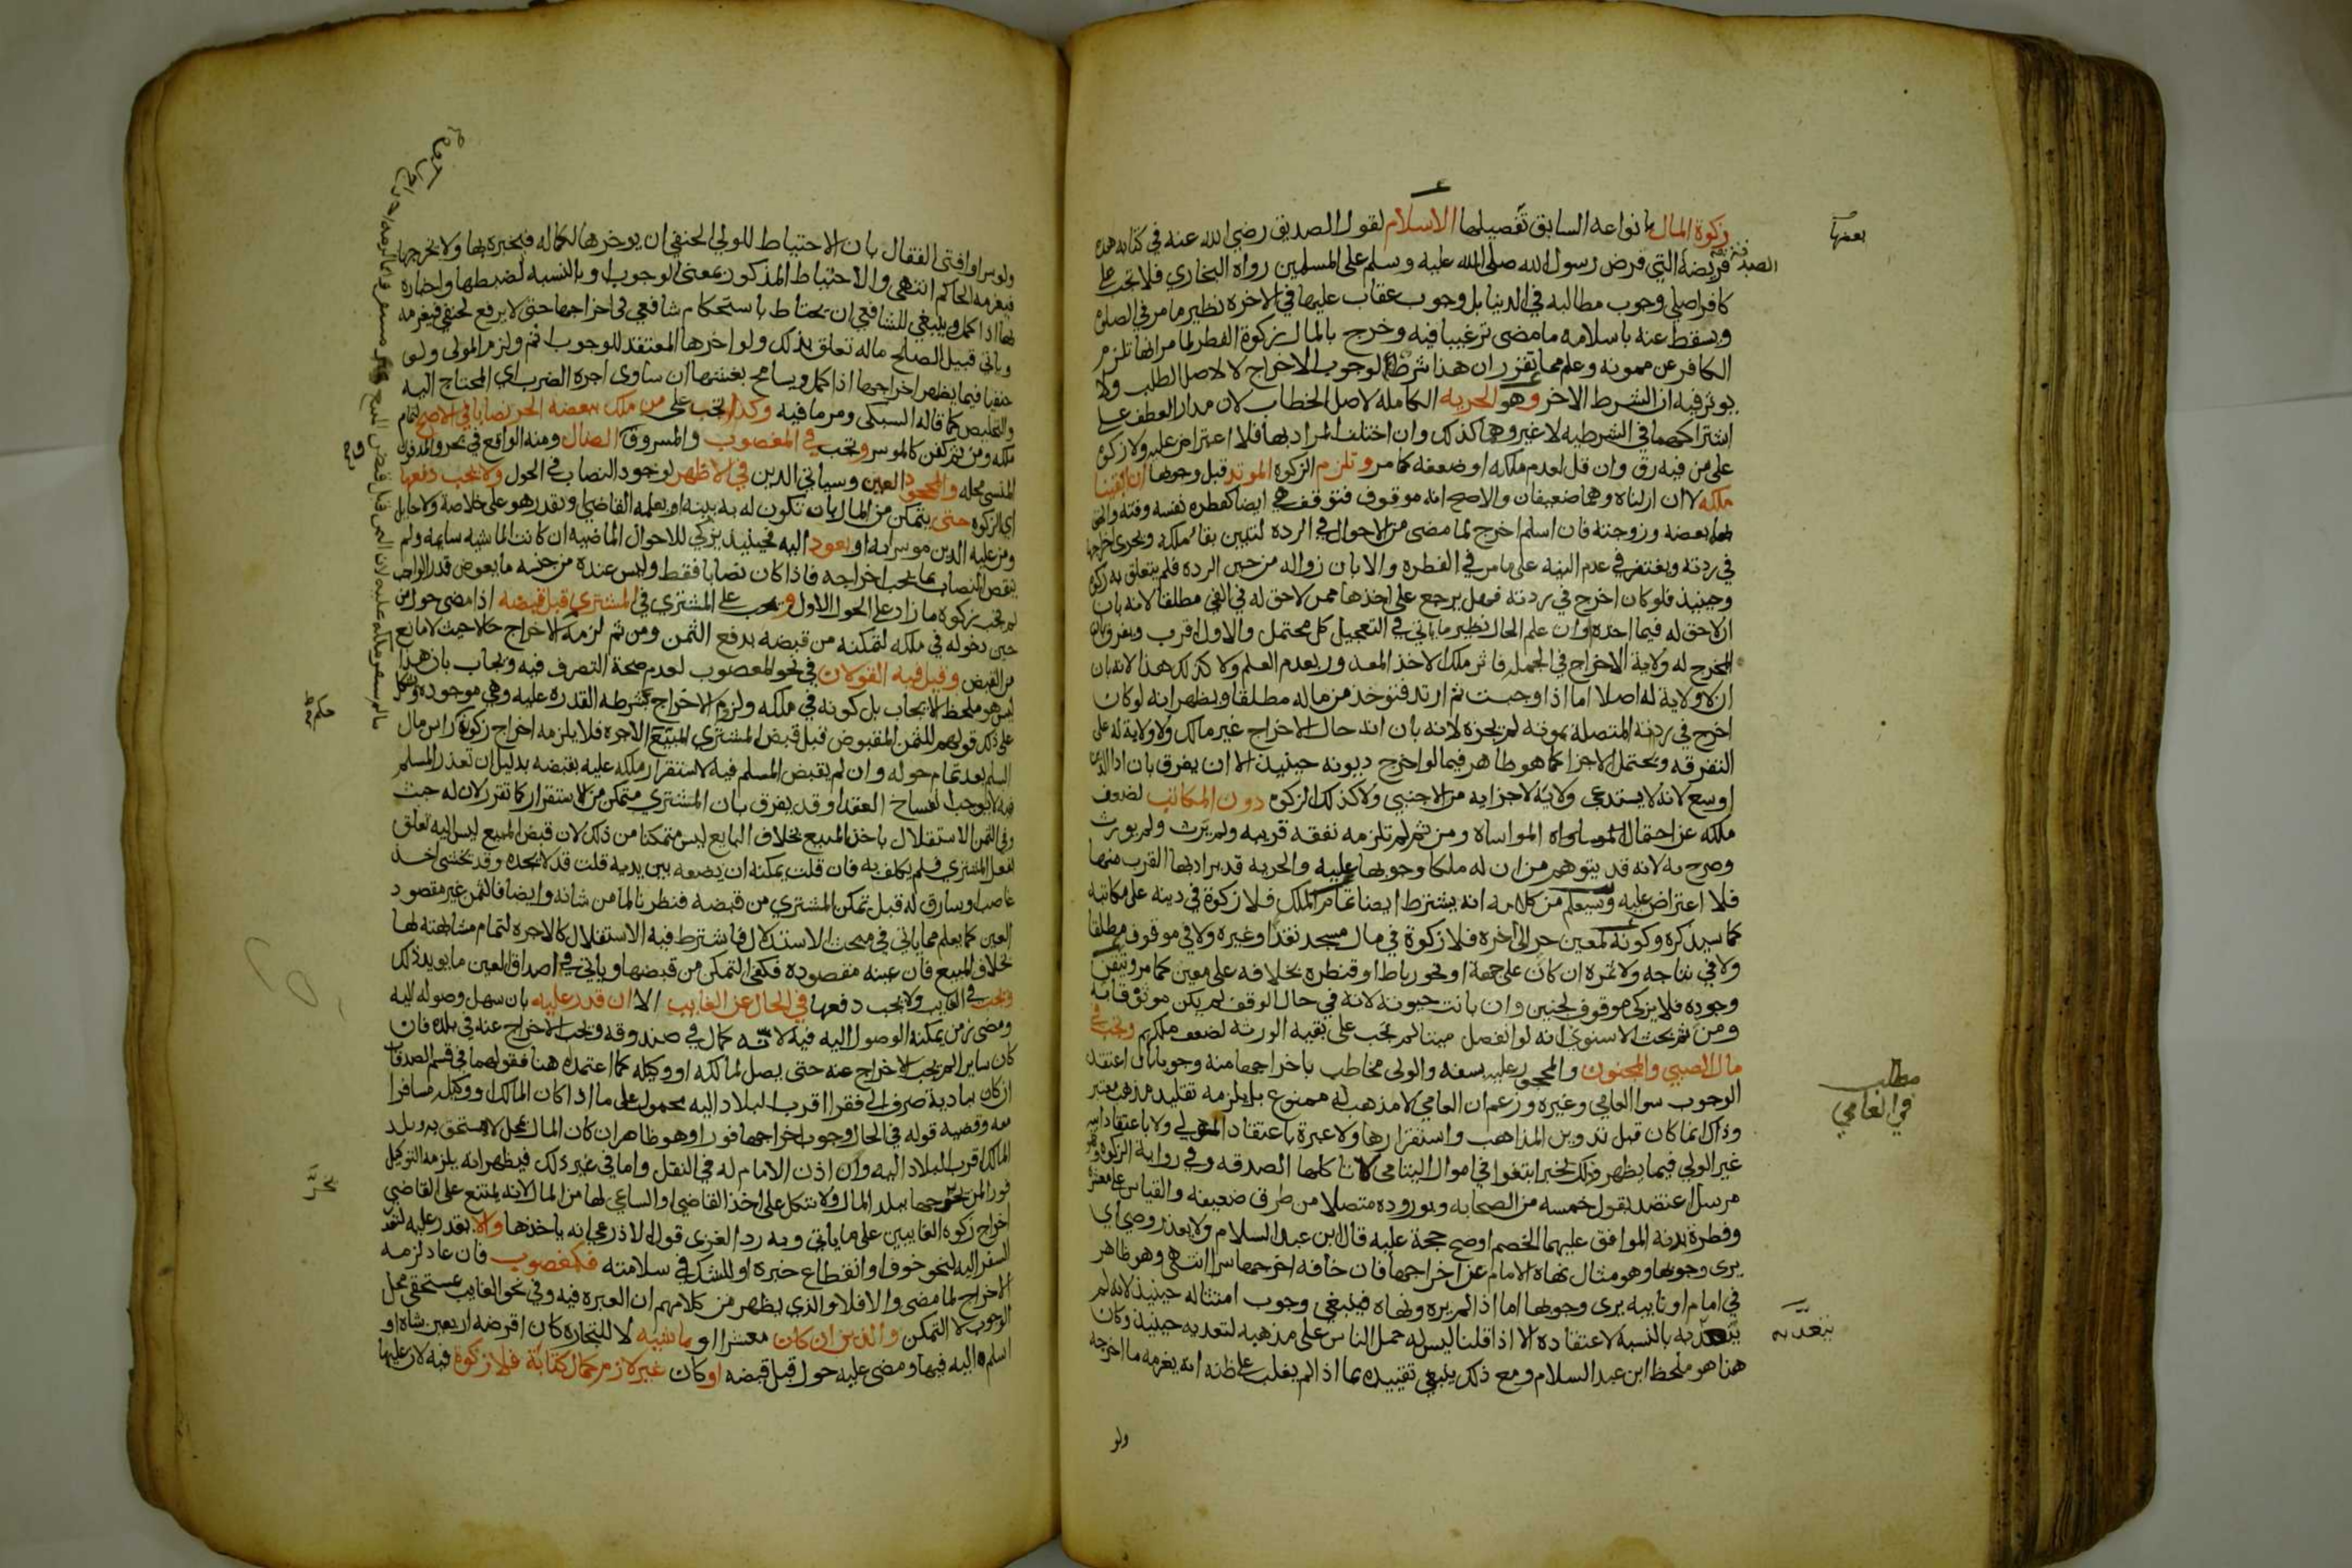 زكوة المال بانواعه السابق تفصيلها الاسلام لقول الصديق رضي الله عنه في كتابه هذه
فريضة الصدقة التي فرض رسول الله صلى الله عليه وسلم على المسلمين رواه البخاري فلا تجب على
كافر اصلي وجوب مطالبه في الدنيا بل وجوب عقاب عليها في الاخرة نظير ما مر في الصلوة
ويسقط عنه باسلامه ما مضى ترغيبا فيه وخرج بالمال زكوة الفطر لما مر انها تلزم
الكافر عن ممونه وعلم مما تقرر ان هذا شرط لوجوب الاخراج لا لاصل الطلب ولا
يوثر فيه ان الشرط الاخر وهو الحريه الكامله لاصل الخطاب لان مدار العطف على
اشتراكهما في الشرطيه لا غير وهما كذلك وان اختلف المراد بها فلا اعتراض عليه ولا زكوة
على من فيه رق وان قل لعدم ملكه او ضعفه كما مر وتلزم الزكوة المرتد قبل وجوبها ان ابقينا
ملكه لا ان ازلناه وهما ضعيفان والاصح انه موقوف فتوقف هي ايضا كفطرة نفسه
بعضه وزوجته فان اسلم اخرج لما مضى من الاحوال في الردة لتبين بقاء ملكه ويجزي اخراجها
في ردته ويغتفر في عدم النيه على ما مر في الفطره والا بان زواله من حين الرده فلم يتعلق به زكوة
وحينيذ فلو كان اخرج في ردته فهل يرجع على اخذها ممن لا حق له في الفي مطلقا لانه بان
ان لا حق له فيما اخذه او ان علم الحال نظير ما ياتي في التعجيل كل محتمل والاول اقرب ويفرق بان
المخرج له ولاية الاخراج في الجملة فاثر ملك الاخذ المعذور بعدم العلم ولا كذلك هذا لانه بان
ان لا ولاية له اصلا اما اذا وجبت ثم ارتد فتوخذ من ماله مطلقا ويظهر انه لو كان
اخرج في ردته المتصلة بموته لم يجزه لانه بان انه حال الاخراج غير مالك ولا ولاية له على
التفرقه ويحتمل الاجزا كما هو ظاهر فيما لو اخرج ديونه حينيذ الا ان يفرق بان ادا الدين
اوسع لانه لا يستدعي ولاية لاجزايه من الاجنبي ولا كذلك الزكوه دون المكاتب لضعف
ملكه عن احتمال المواساه ومن ثم لم تلزمه نفقة قريبه ولم يرث ولم يورث
وصرح به لانه قد يتوهم من ان له ملكا وجوبها عليه والحريه قد يراد بها القرب منها
فلا اعتراض عليه وسيعلم من كلامه انه يشترط ايضا تمام الملك فلا زكوة في دينه على مكاتبه
كما سيذكره وكونه لمعين حر الى اخره فلا زكوة في مال مسجد نقدا وغيره ولا في موقوف مطلقا
ولا في نتاجه ولا ثمره ان كان على جهة او نحو رباط او قنطره بخلافه على معين كما مر وتيقن
وجوده فلا يزكى موقوف لجنين وان بانت حيوته لانه في حال الوقف لم يكن موثوقا به
ومن ثم بحث الاسنوي انه لو انفصل ميتا لم تجب على بقيه الورثه لضعف ملكهم وتجب في
مال الصبي والمجنون والمحجور عليه بسفه والولي مخاطب باخراجها منه وجوبا ان اعتقد
الوجوب سوا العامي وغيره وزعم ان العامي لا مذهب له ممنوع بل يلزمه تقليد مذهب معتبر
وذاك انما كان قبل تدوين المذاهب واستقرارها ولا عبرة باعتقاد المولي ولا باعتقاد ابيه
غير الولي فيما يظهر وذلك لخبر ابتغوا في اموال اليتامى لا تاكلها الصدقه وفي رواية الزكوة وهو
مرسل اعتضد بقول خمسه من الصحابه وبوروده متصلا من طرق ضعيفه والقياس على معشره
وفطرة بدنه الموافق عليهما الخصم اوضح حجة عليه قال ابن عبد السلام ولا يعذر وصي اي
يرى وجوبها وهو مثال نهاه الامام عن اخراجها فان خافه اخرجها سرا انتهى وهو ظاهر
في امام او نايبه يرى وجوبها اما اذا لم يره ونهاه فينبغي وجوب امتثاله حينيذ لانه لم
به بالنسبه لاعتقاده الا اذا قلنا ليس له حمل الناس على مذهبه لتعديه حينيذ وكان
هذا هو ملحظ ابن عبد السلام ومع ذلك ينبغي تقييده بما اذا لم يغلب على ظنه انه يغرمه ما اخرجه
ولو
بعضها
مطلب
في العامي
يتعد به
ولو سرا وافتى القفال بان الاحتياط للولي الحنفي ان يوخرها لكماله فيخبره بها ولا يخرجها
فيغرمه الحاكم انتهى والاحتياط المذكور بمعنى الوجوب وبالنسبه لضبطها واخباره
بها اذا كمل وينبغي للشافعي ان يحتاط باستحكام شافعي في اخراجها حتى لا يرفع لحنفي فيغرمه
وياتي قبيل الصلح ماله تعلق بذلك ولو اخرها المعتقد للوجوب اثم ولزم المولى ولو
حنفيا فيما يظهر اخراجها اذا كمل ويسامح بغشها ان ساوى اجرة الضرب اي المحتاج اليه
والتخليص كما قاله السبكي ومر ما فيه وكذا تجب على من ملك ببعضه الحر نصابا في الاصح لتمام
ملكه ومن ثم كفن كالموسر وتجب في المغصوب والمسروق الضال ومنه الواقع في بحر والمدفون
المنسي محله والمجحود العين وسياتي الدين في الاظهر لوجود النصاب في الحول ولا يجب دفعها
اي الزكوه حتى يتمكن من المال بان تكون له به بينه او يعلمه القاضي ويقدر هو على خلاصه ولا حايل
ومن عليه الدين موسر به او يعود اليه فحينيذ يزكي للاحوال الماضيه ان كانت الماشيه سايمه ولم
ينقص النصاب بما يجب اخراجه فاذا كان نصابا فقط وليس عنده من جنسه ما يعوض قدر الواجب
لم تجب زكوة ما زاد على الحول الاول وتجب على المشتري في المشترى قبل قبضه اذا مضى حول من
حين دخوله في ملكه لتمكنه من قبضه بدفع الثمن ومن ثم لزمه الاخراج حالا حيث لا مانع
من القبض وقيل فيه القولان في نحو المغصوب لعدم صحة التصرف فيه ويجاب بان هذا
ليس هو ملحظ الايجاب بل كونه في ملكه ولزوم الاخراج بشرطه القدره عليه وهي موجوده
على ذلك قولهم للثمن المقبوض قبل قبض المشتري المبيع الاجره فلا يلزمه اخراج زكوة راس مال
السلم بعد تمام حوله وان لم يقبض المسلم فيه لاستقرار ملكه عليه بقبضه بدليل ان تعذر المسلم
فيه لا يوجب انفساخ العقد وقد يفرق بان المشتري متمكن من الاستقرار كما تقرر لان له حيث
وفى الثمن الاستقلال باخذ المبيع بخلاف البايع ليس متمكنا من ذلك لان قبض المبيع ليس اليه لتعلق
لفعل المشتري فلم يكلف به فان قلت يمكنه ان يضعه بين يديه قلت قد لا يجده وقد يخشى اخذ
غاصب او سارق له قبل تمكن المشتري من قبضه فنظرنا لما من شانه وايضا فالثمن غير مقصود
العين كما يعلم مما ياتي في مبحث الاستبدال فاشترط فيه الاستقلال كالاجره لتمام مشابهته لها
بخلاف المبيع فان عينه مقصوده فكفى التمكن من قبضها وياتي في اصداق العين ما يويد ذلك
وتجب في الغايب ولا يجب دفعها في الحال عن الغايب الا ان قدر عليه بان سهل وصوله اليه
ومضى زمن يمكنه الوصول اليه فيه لانه كمال في صندوقه ويجب الاخراج عنه في بلده فان
كان سايرا لم يجب الاخراج عنه حتى يصل لمالكه او وكيله كما اعتمده هنا فقولهما في قسم الصدقات
ان كان ببادية صرف الى فقرا اقرب البلاد اليه محمول على ما اذا كان المالك او وكيله مسافرا
معه وقضية قوله في الحال وجوب اخراجها فورا وهو ظاهر ان كان المال بمحل لا مستحق به وبلد
المالك اقرب البلاد اليه وان اذن الامام له في النقل واما في غير ذلك فيظهر انه يلزمه التوكيل
فورا لمن يخرجها ببلد المال ولا نتكل على اخذ القاضي او الساعي لها من المال لانه يمتنع على القاضي
اخراج زكوة الغايبين على ما ياتي وبه رد الغزي قول الاذرعي انه ياخذها والا يقدر عليه لتعذر
السفر اليه لنحو خوف او انقطاع خبره او للشك في سلامته فكمغصوب فان عاد لزمه
الاخراج لما مضى والا فلا والذي يظهر من كلامهم ان العبره فيه وفي نحو الغايب بمستحقي محل
الوجوب لا التمكن والدين ان كان معشرا او ماشيه لا للتجاره كان اقرضه اربعين شاه او
اسلم اليه فيها ومضى عليه حول قبل قبضه او كان غير لازم كمال كتابة فلا زكوة فيه لان عليها